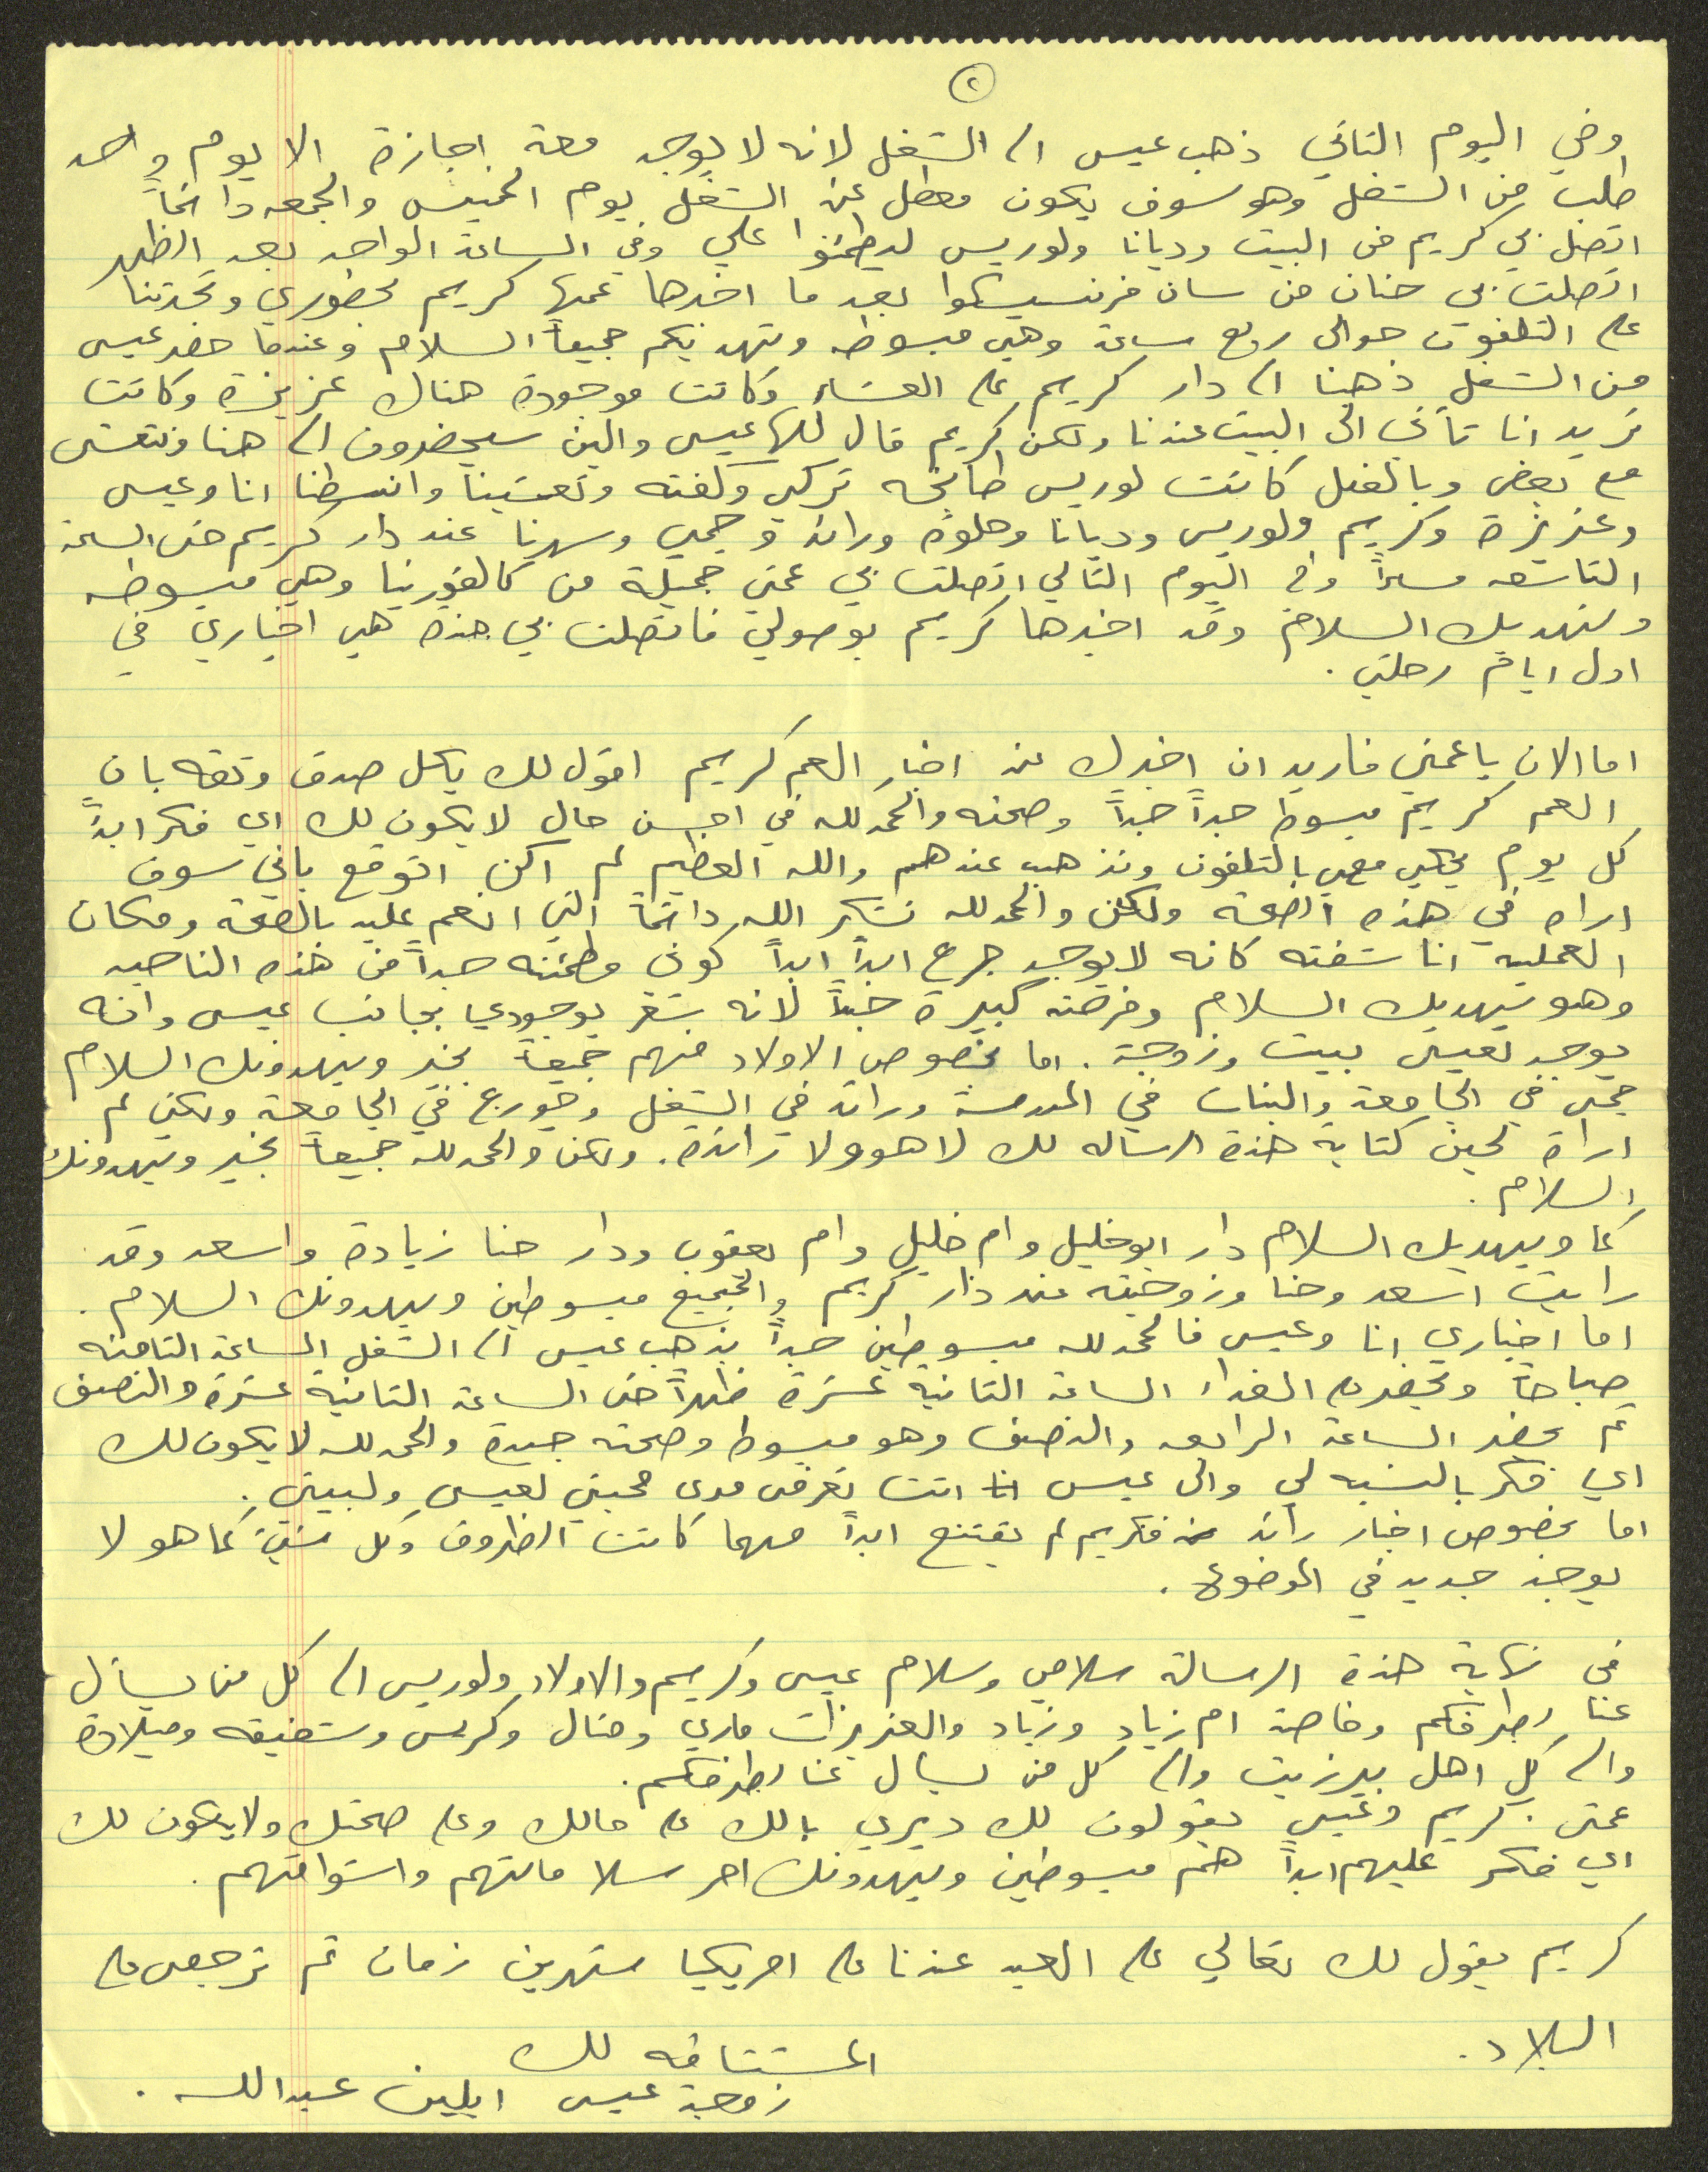 ٢
وفي اليوم الثاني ذهب عيسى الى الشغل لانه لا يوجد معه اجازة الا يوم واحد
طلب من الشغل وهو سوف يكون معطل عن الشغل يوم الخميس والجمعه دائماً
اتصل بي كريم من البيت وديانا ولوريس ليطمئنوا علي وفي الساعة الواحد بعد الظهر
اتصلت بي حنان من سان فرنسيسكوا بعد ما اخبرها عمها كريم بحضوري وتحدثنا
على التلفون حوالى ربع ساعة وهي مبسوطه وتهديكم جميعاً السلام وعندما حضر عيسى
من الشغل ذهبنا الى دار كريم على العشاء وكانت موجودة هناك عزيزة وكانت
تريد انا تأتي الى البيت عندنا ولكن كريم قال لها عيسى والين سيحضرون الى هنا ونتعشى
مع بعض وبالفعل كانت لوريس طابخه تركي وكفته وتعشينا وانبسطنا انا وعيسى
وعزيزة وكريم ولوريس وديانا وحلوه ورائد وجمي وسهرنا عند دار كريم حتى الساعة
التاسعه مساءً وفي اليوم التالي اتصلت بي عمتي جميلة من كالفورنيا وهي مبسوطه
وتهديك السلام وقد اخبرها كريم بوصولي فاتصلت بي هذه هي اخباري في
اول ايام رحلتي .
اما الان يا عمتي فاريد ان اخبرك عن اخبار العم كريم اقول لك بكل صدق وثقه بان
العم كريم مبسوط جداً جداً وصحته والحمدلله في احسن حال لا يكون لك اي فكر ابداً
كل يوم يحكي معي بالتلفون ونذهب عندهم والله العظيم لم اكن اتوقع باني سوف
اراه في هذه الصحة ولكن والحمدلله نشكر الله دائماً التي انعم عليه بالصحة ومكان
العملية انا شفته كانه لا يوجد جرح ابداً ابداً كوني مطمئنه جداً من هذه الناحيه
وهو يهديك السلام وفرحته كبيرة جداً لانه شعر بوجودي بجانب عيسى وانه
يوجد لعيسى بيت وزوجة . اما بخصوص الاولاد فهم جميعاً بخير ويهدونك السلام
جمي في الجامعة والبنات في المدرسة ورائد في الشغل وجورج في الجامعة ولكن لم
اراة لحين كتابة هذة الرساله لك لا هو ولا رائده . ولكن والحمدلله جميعاً بخير ويهدونك
السلام .
كما ويهديك السلام دار ابو خليل وام خليل وام يعقوب ودار حنا زيادة واسعد وقد
رايت اسعد وحنا وزوجته عند دار كريم والجميع مبسوطين ويهدونك السلام .
اما اخباري انا وعيسى فالحمدلله مبسوطين جداً يذهب عيسى الى الشغل الساعة الثامنه
صباحاً ويحضر على الغداء الساعة الثانيه عشرة ظهراً حتى الساعة الثانية عشرة والنصف
ثم يحضر الساعة الرابعه والنصف وهو مبسوط وصحته جيدة والحمدلله لا يكون لك
اي فكر بالنسبه لي والى عيسى انتت تعرفى مدى محبتي لعيسى ولبيتي .
اما بخصوص اخبار رائد فكريم لم يقتنع ابداً مهما كانت الظروف وكل شيئ كما هو لا
يوجد جديد في الموضوع .
فى نهاية هذة الرسالة سلامي وسلام عيسى وكريم والاولاد ولوريس الى كل من يسأل
عنا بطرفكم وخاصة ام زياد وزياد والعزيزات ماري ومنال وكريس وشفيقه وميلادة
والى كل اهل بيرزيت والى كل من يسال عنا بطرفكم .
عمتى . كريم وعيسى يقولون لك ديري بالك على حالك وعلى صحتك ولا يكون لك
اي فكر عليهم ابداً هم مبسوطين ويهدونك احر سلاماتهم واشواقهم .
كريم يقول لك تعالي على العيد عندنا على امريكيا ستهرين زمان ثم ترجعى على
البلاد .
المشتاقه لك
زوجة عيسى ايلين عبدالله .